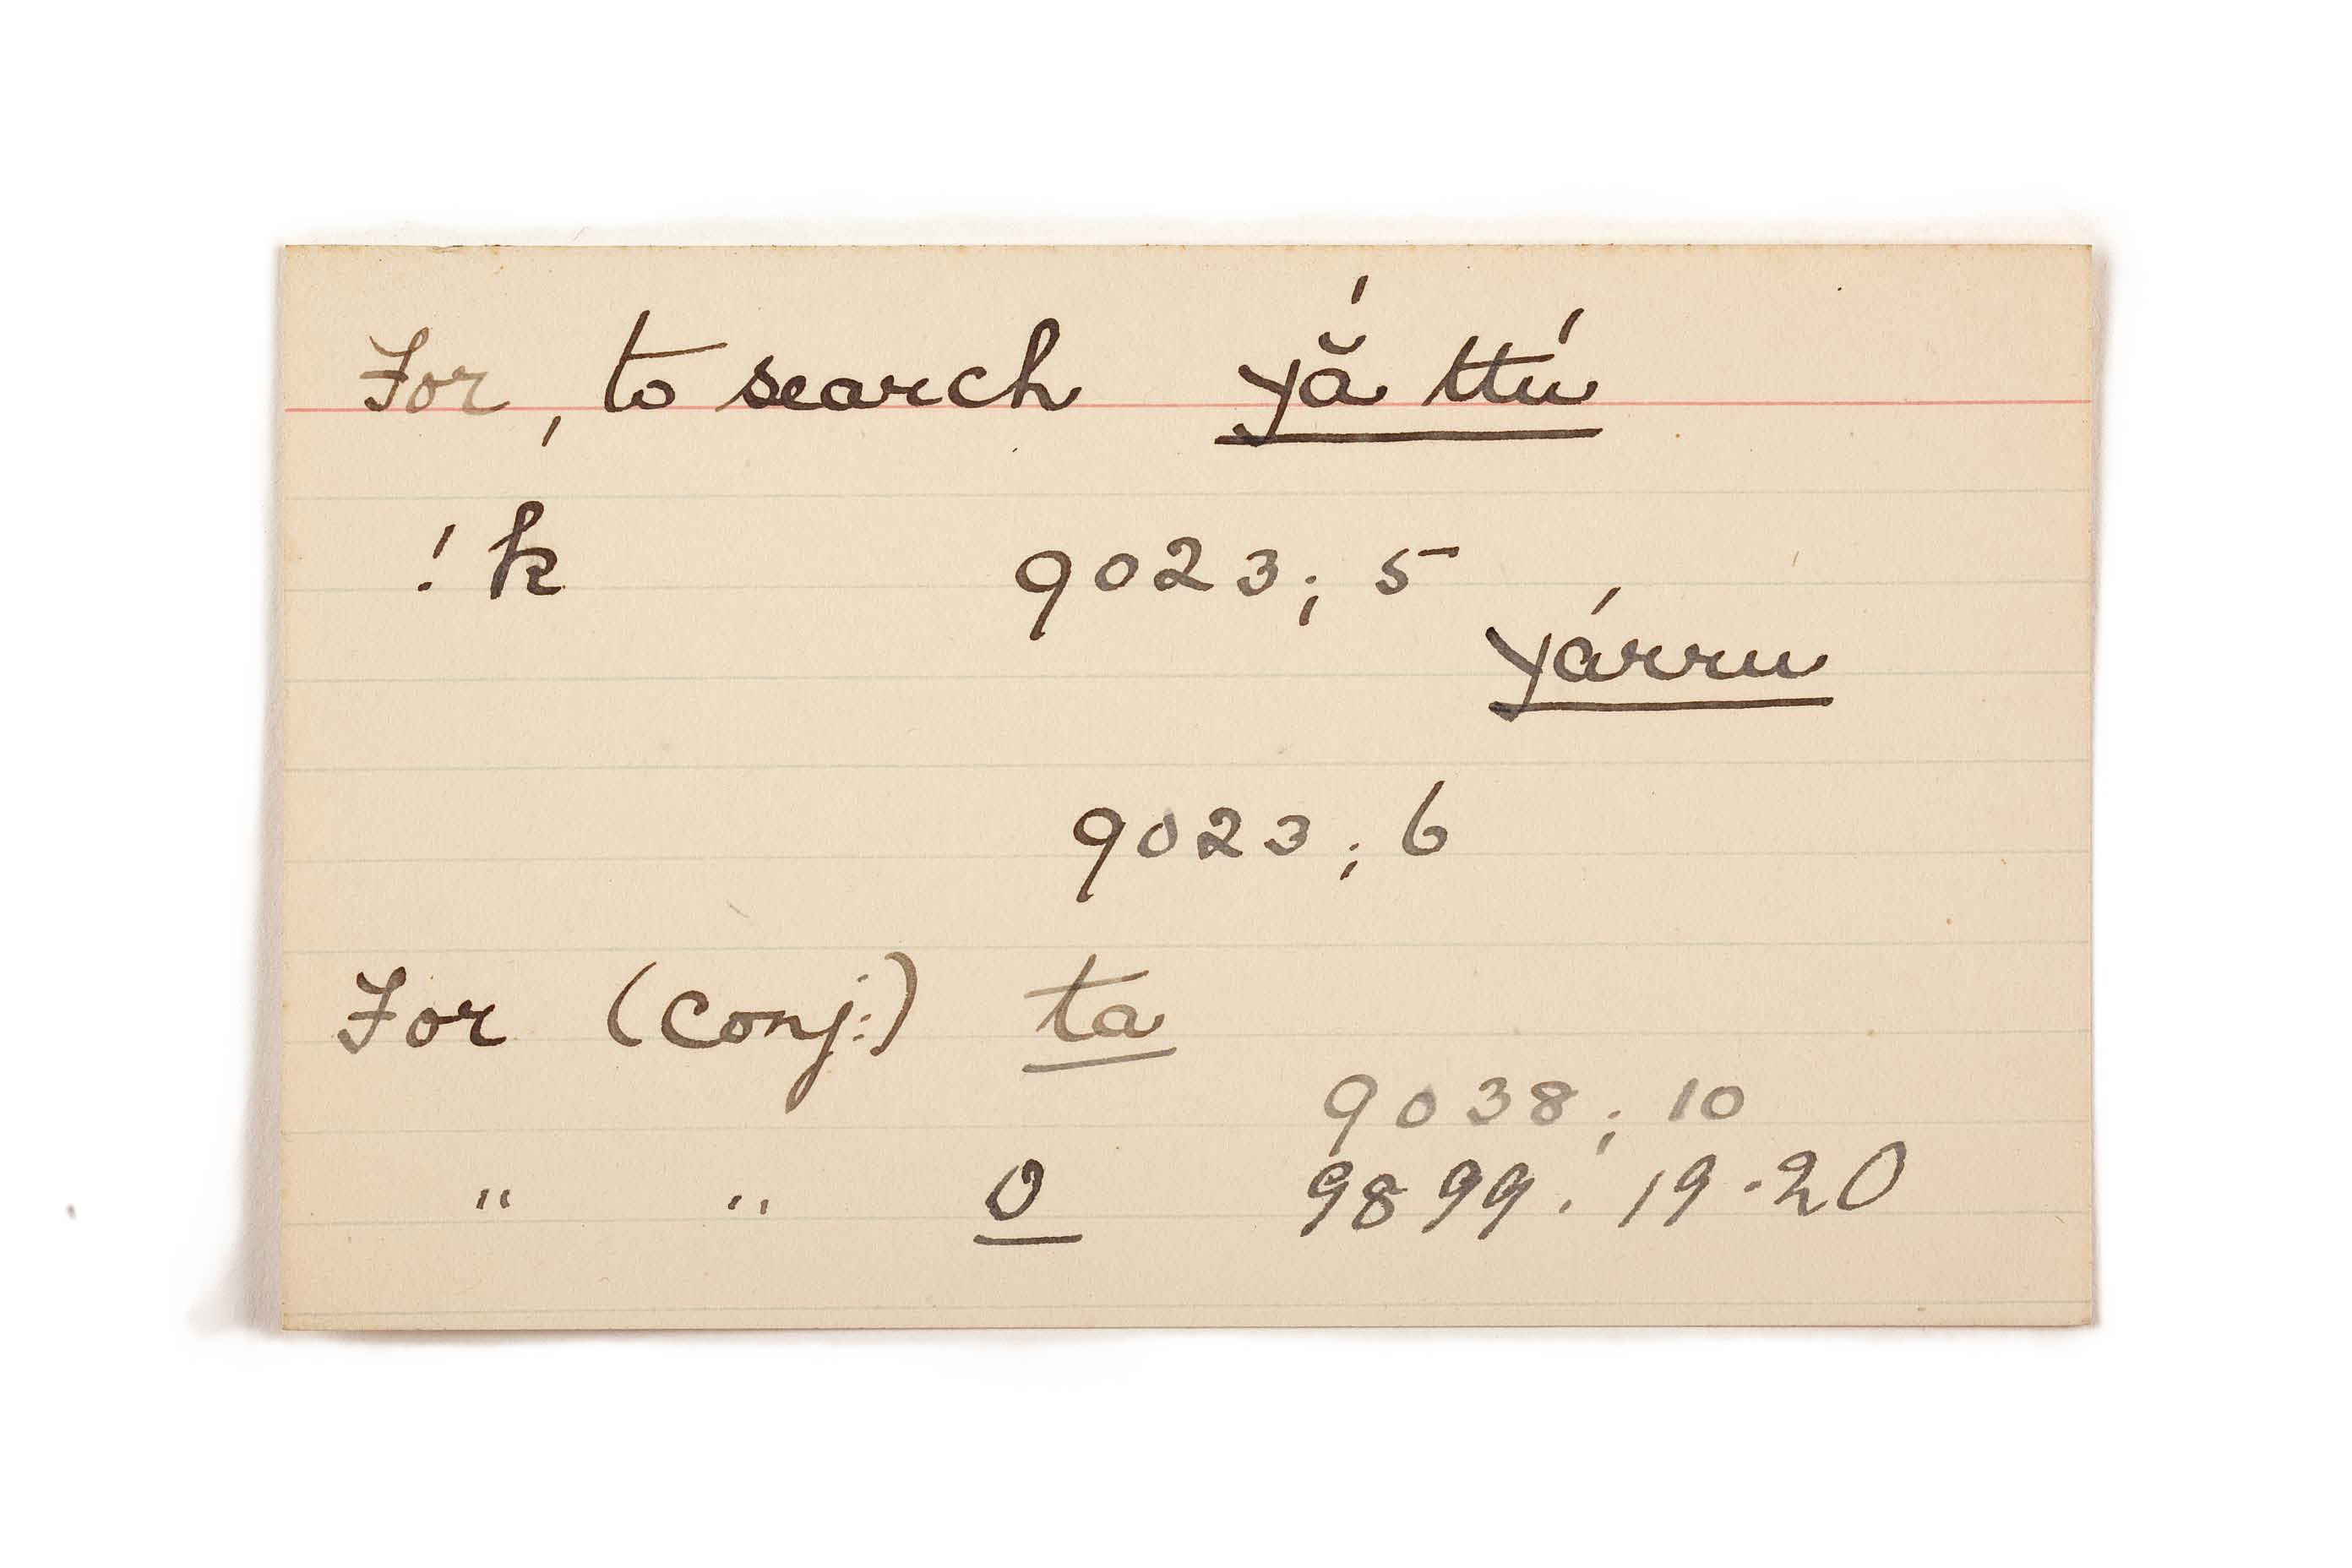 For, to search yắ ttú
!k 9023; 5
yárru
9023; 6
For (conj:) ta
9038; 10
" " o 9899; 19.20